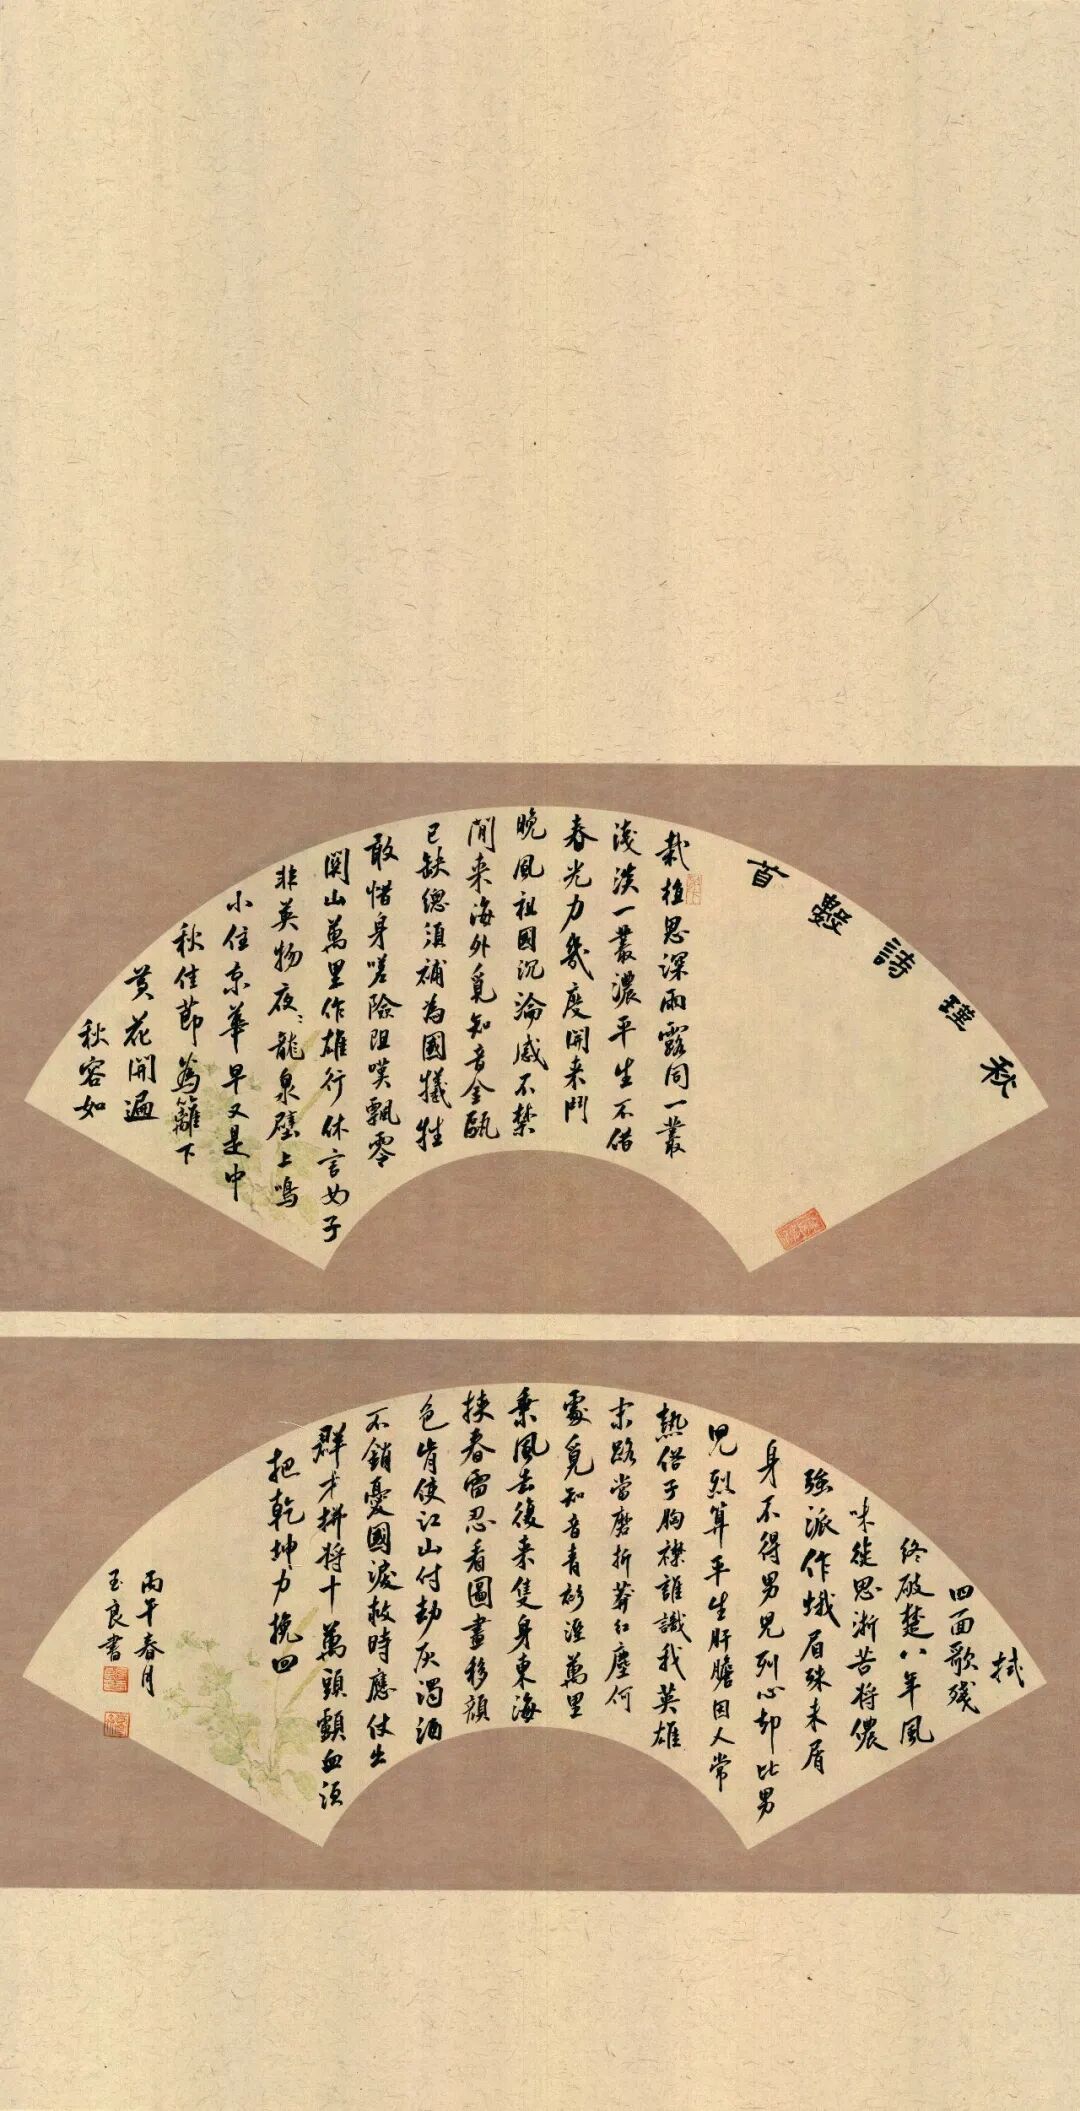 秋瑾詩數首
栽植恩深雨露同一叢
淺淡一叢濃平生不借
春光力幾度開来鬥
晚風祖國沉淪感不禁
閒来海外覓知音金甌
已缺總須補為國犧牲
敢惜身嗟險阻嘆飄零
關山萬里作雄行休言女子
非英物夜〻龍泉壁上鳴
小住京華早又是中
秋佳節為籬下
黄花開遍
秋容如
拭
四面歌殘
終破楚八年風
味徒思浙苦将儂
強派作蛾眉殊未屑
身不得男児列心却比男
児烈算平生肝膽因人常
熱俗子胸襟誰識我英雄
末路當磨折莽紅塵何
處覓知音青衫溼萬里
乘風去復来隻身東海
挟春雷忍看圖畫移顔
色肯使江山付劫灰濁酒
不銷憂國淚救時應仗出
群才拼将十萬頭顱血須
把乾坤力挽回
丙午春月
玉良書